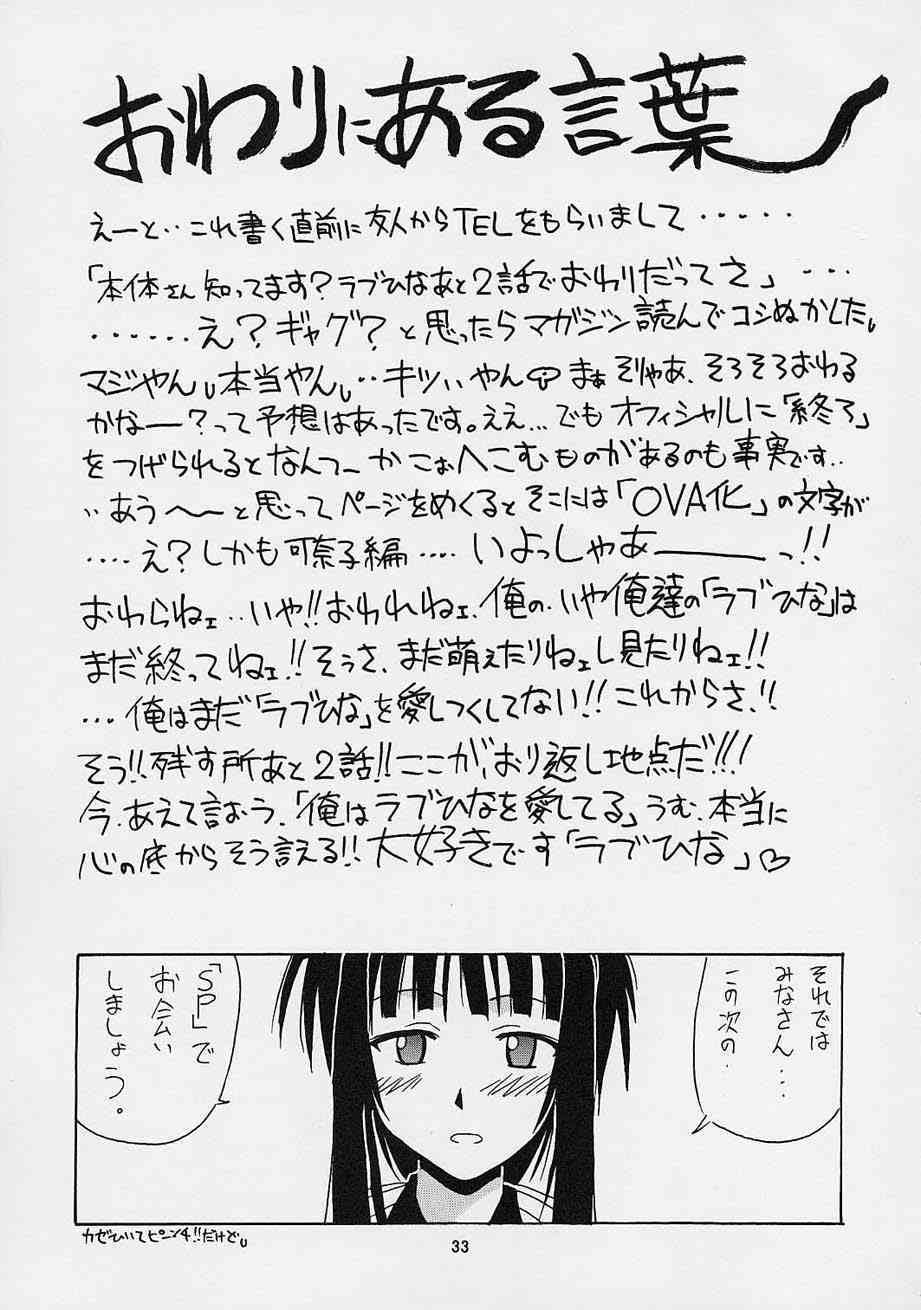 おわりにある言葉
えーと‥これ書く直前に友人からTELをもらいまして・・・・・
「本体さん知ってます？ラブひなあと2話でおわりだってさ」・・・
・・・・・・え？ギャグ？と思ったらマガジン読んでコシぬかした。
マジやん。本当やん。‥キツいやん まぁそりゃあ、そろそろおわる
かなー？って予想はあったです。ええ…でもオフィシャルに「終了」
をつげられるとなんてーかこぉへこむものがあるのも事実です‥
‥あう〜と思ってページをめくるとそこには「OVA化」の文字が
・・・・え？しかも可奈子編・・・・いよっしゃあーーーっ!!
おわらねェ‥いや!!おわれねェ、俺の、いや俺達の「ラブひな」は
まだ終ってねェ!!そうさ、まだ萌えたりねェし見たりねェ!!
…俺はまだ「ラブひな」を愛しつくしてない!!これからさ!!
そう!!残す所あと2話!!ここが、おり返し地点だ!!!
今、あえて言おう、「俺はラブひなを愛してる」うむ、本当に
心の底からそう言える!!大好きです「ラブひな」♡
それでは
みなさん・・・
この次の
「SP」で
お会い
しましょう。
カゼひいてピーンチ!!だけど。
33